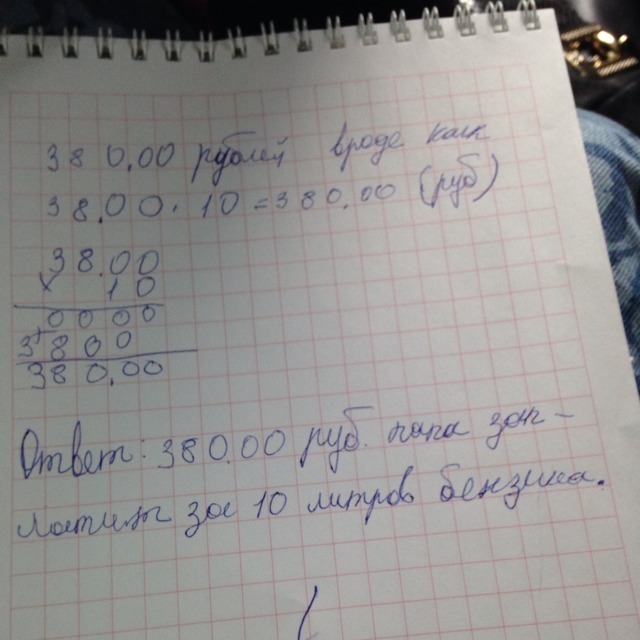 380.00 рублей вроде как
38.00 · 10 = 380.00 (руб)
38.00
× 10
0000
+
3800
380.00
Ответ: 380.00 руб. папа зап-
латит за 10 литров бензина.